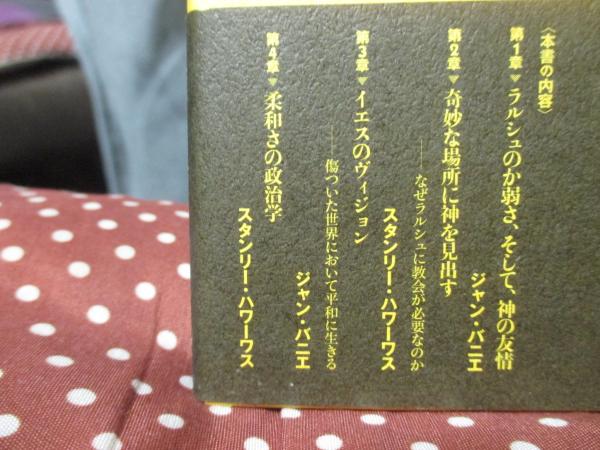 〈本書の内容〉
第1章▼ラルシュのか弱さ、そして、神の友情
ジャン・バニエ
第2章▼奇妙な場所に神を見出す
──なぜラルシュに教会が必要なのか
スタンリー・ハワーワス
第3章▼イエスのヴィジョン
──傷ついた世界において平和に生きる
ジャン・バニエ
第4章▼柔和さの政治学
スタンリー・ハワーワス